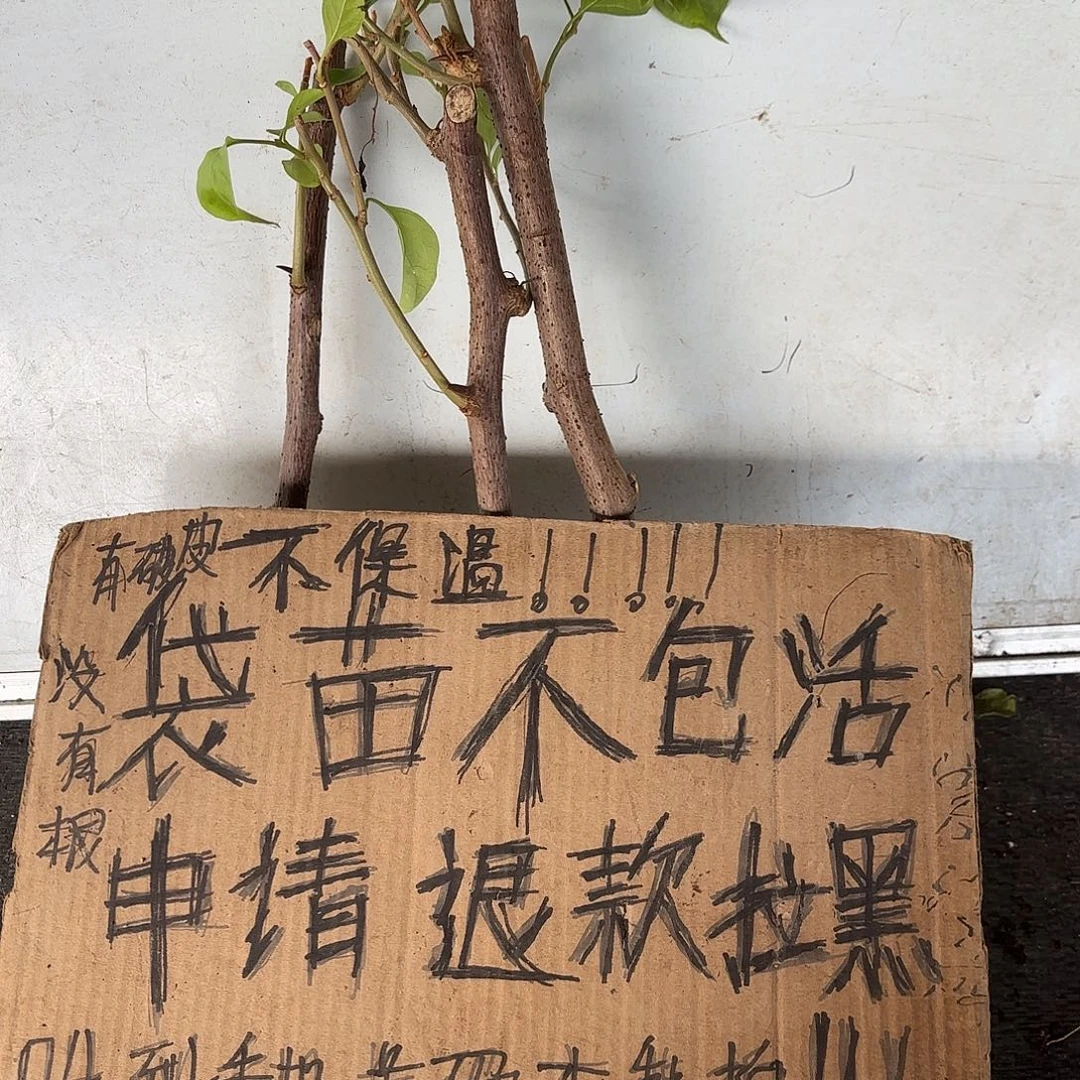 有破皮不保過!!!!!
袋苗不包活
没有根
申请退款拉黑